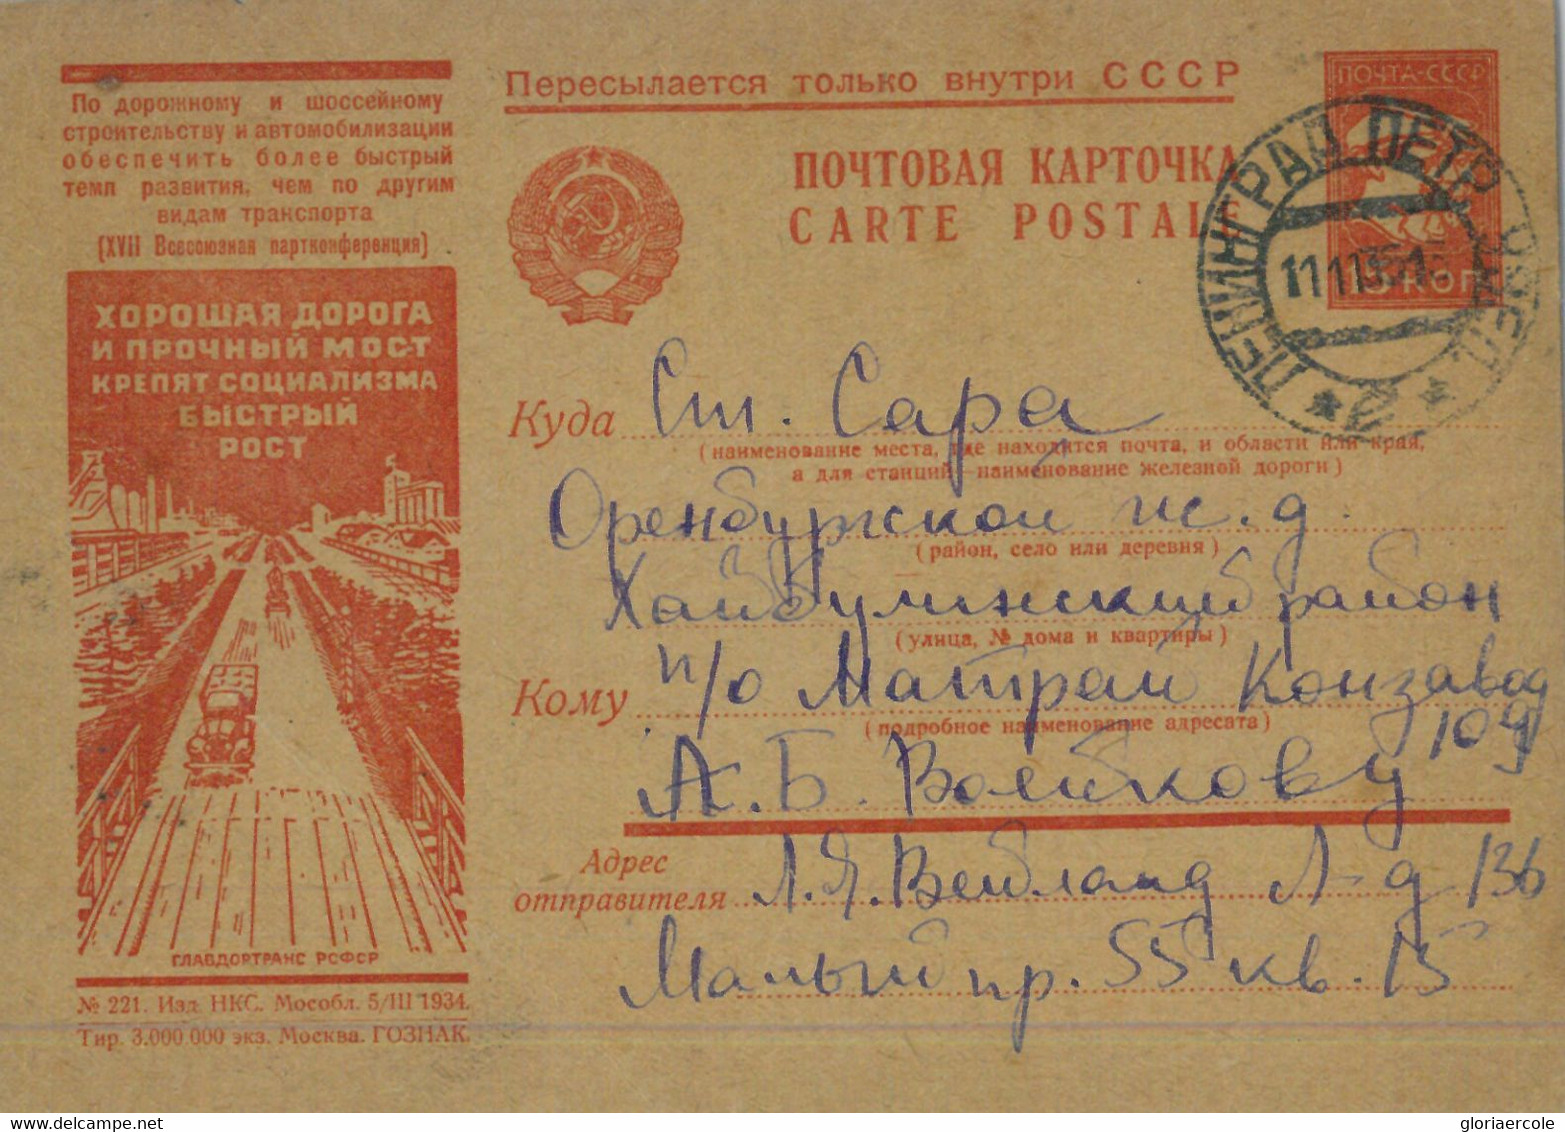 По дорожному и шоссейному
строительству и автомобилизации
обеспечить более быстрый
темп развития, чем по другим
видам транспорта
(XVII Всесоюзная партконференция)
ХОРОШАЯ ДОРОГА
И ПРОЧНЫЙ МОСТ
КРЕПЯТ СОЦИАЛИЗМА
БЫСТРЫЙ
РОСТ
ГЛАВДОРТРАНС РСФСР
№ 221. Изд. НКС. Мособл. 5/III 1934.
Тир. 3.000.000 экз. Москва. ГОЗНАК.
Пересылается только внутри СССР
ПОЧТОВАЯ КАРТОЧКА
CARTE POSTALE
ПОЧТА-СССР
КОП
ЛЕНИНГРАД ПЕТР
11 11 35
Куда Ст. Сара
(наименование места, где находится почта, и области или края,
а для станций—наименование железной дороги)
Оренбургской ж. д.
(район, село или деревня)
Хайбулинский район
(улица, № дома и квартиры)
Кому п/о Матрай Конзавод
109
(подробное наименование адресата)
А. Б. Волбкову
Адрес
отправителя Л. Я. Вейланд Л-д 136
Малый пр. 55 кв. 15
delcampe.net
gloriaercole